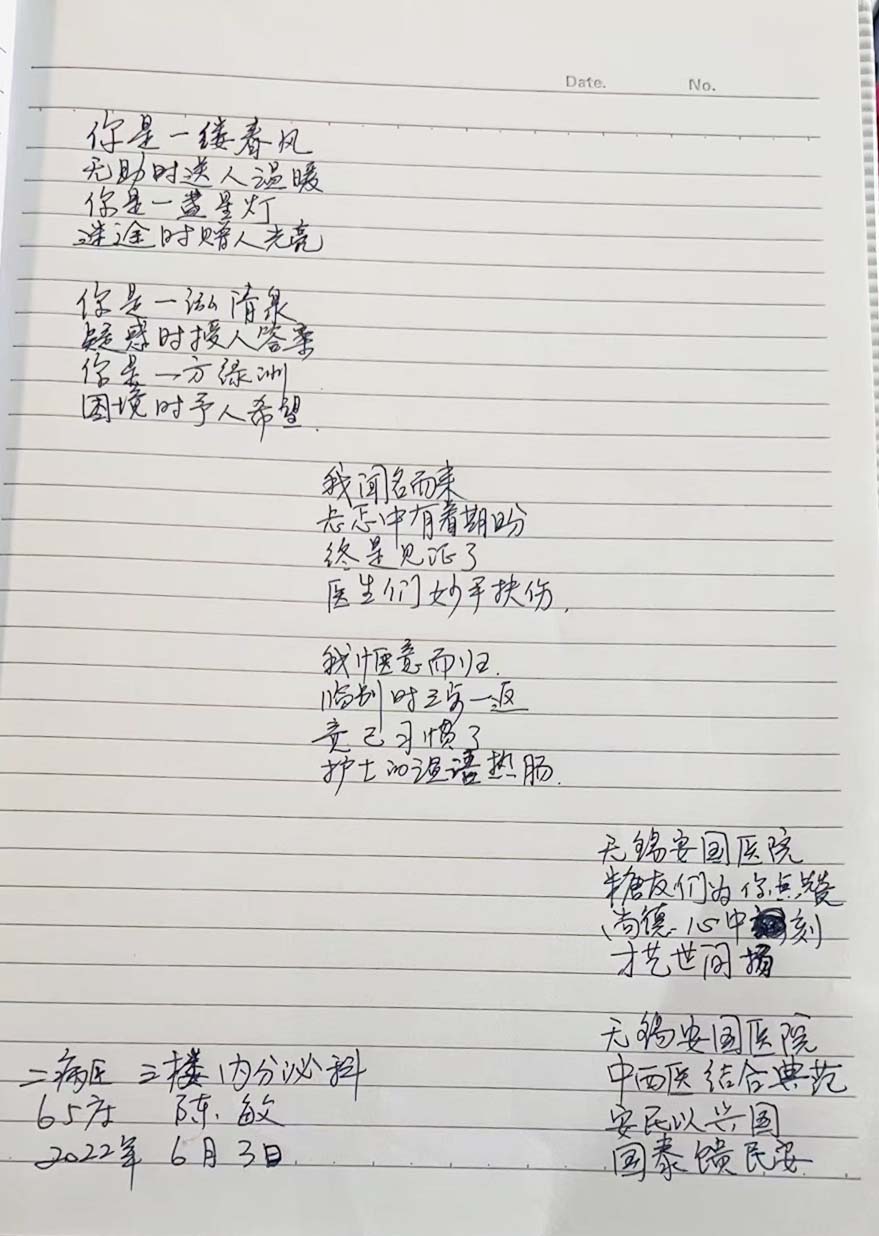 Date.
No.
你是一缕春风
无助时送人温暖
你是一盏星灯
迷途时赠人光亮
你是一泓清泉
疑惑时授人答案
你是一方绿洲
困境时予人希望.
我闻名而来
忐忑中有着期盼
终是见证了
医生们妙手扶伤.
我惬意而归.
临别时三步一返
竟已习惯了
护士的温语热肠.
无锡安国医院
糖友们为你点赞
尚德心中刻
才艺世间扬
无锡安国医院
中西医结合典范
安民以兴国
国泰馈民安
二病区 三楼内分泌科
65床 陈敏
2022年 6月3日